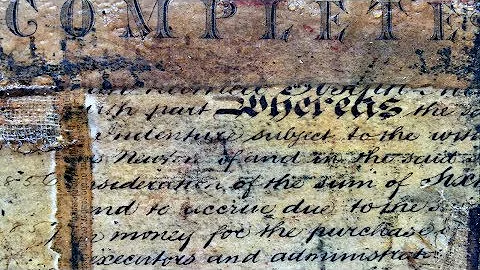 COMPLETE
part Whereas the
Indenture subject to the
of and in the said
consideration of the sum of
and to accrue due to the
money for the purchase
executors and administrat